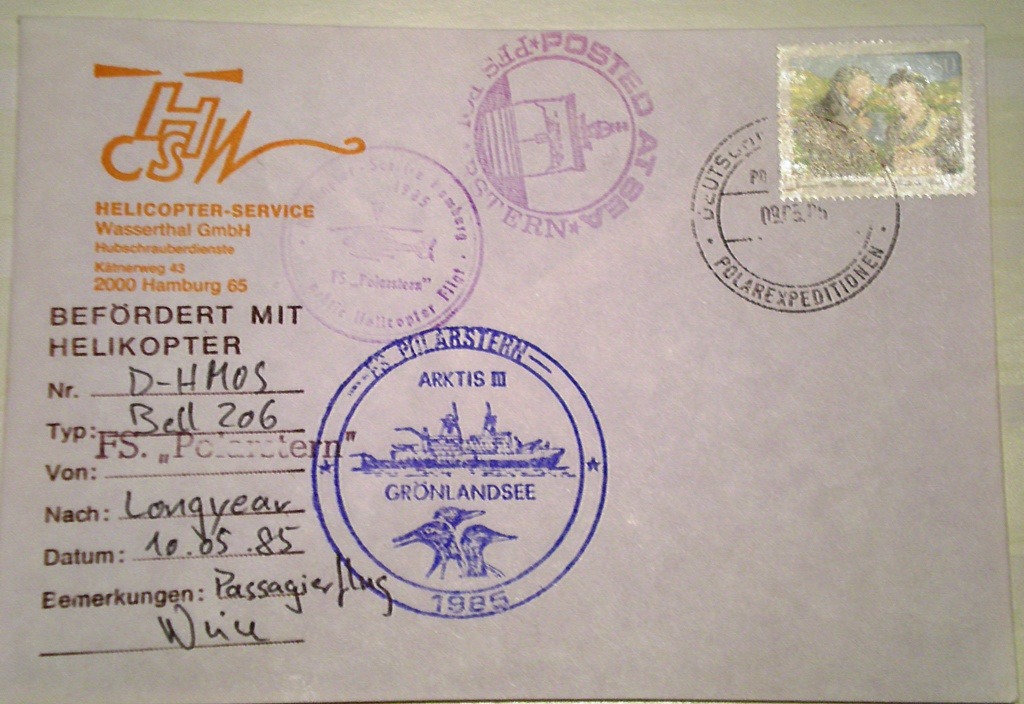 HCSW
HELICOPTER-SERVICE
Wasserthal GmbH
Hubschrauberdienste
Kätnerweg 43
2000 Hamburg 65
BEFÖRDERT MIT
HELIKOPTER
Nr. D-HMOS
Typ: Bell 206
FS. "Polarstern"
Von:
Nach: Longyear
Datum: 10.05.85
Bemerkungen: Passagierflug
Service Hamburg
1985
FS "Polarstern"
Helicopter Flight
POSTED AT SEA
FS POLARSTERN
ARKTIS III
GRÖNLANDSEE
1985
DEUTSCH
POLAREXPEDITIONEN
80